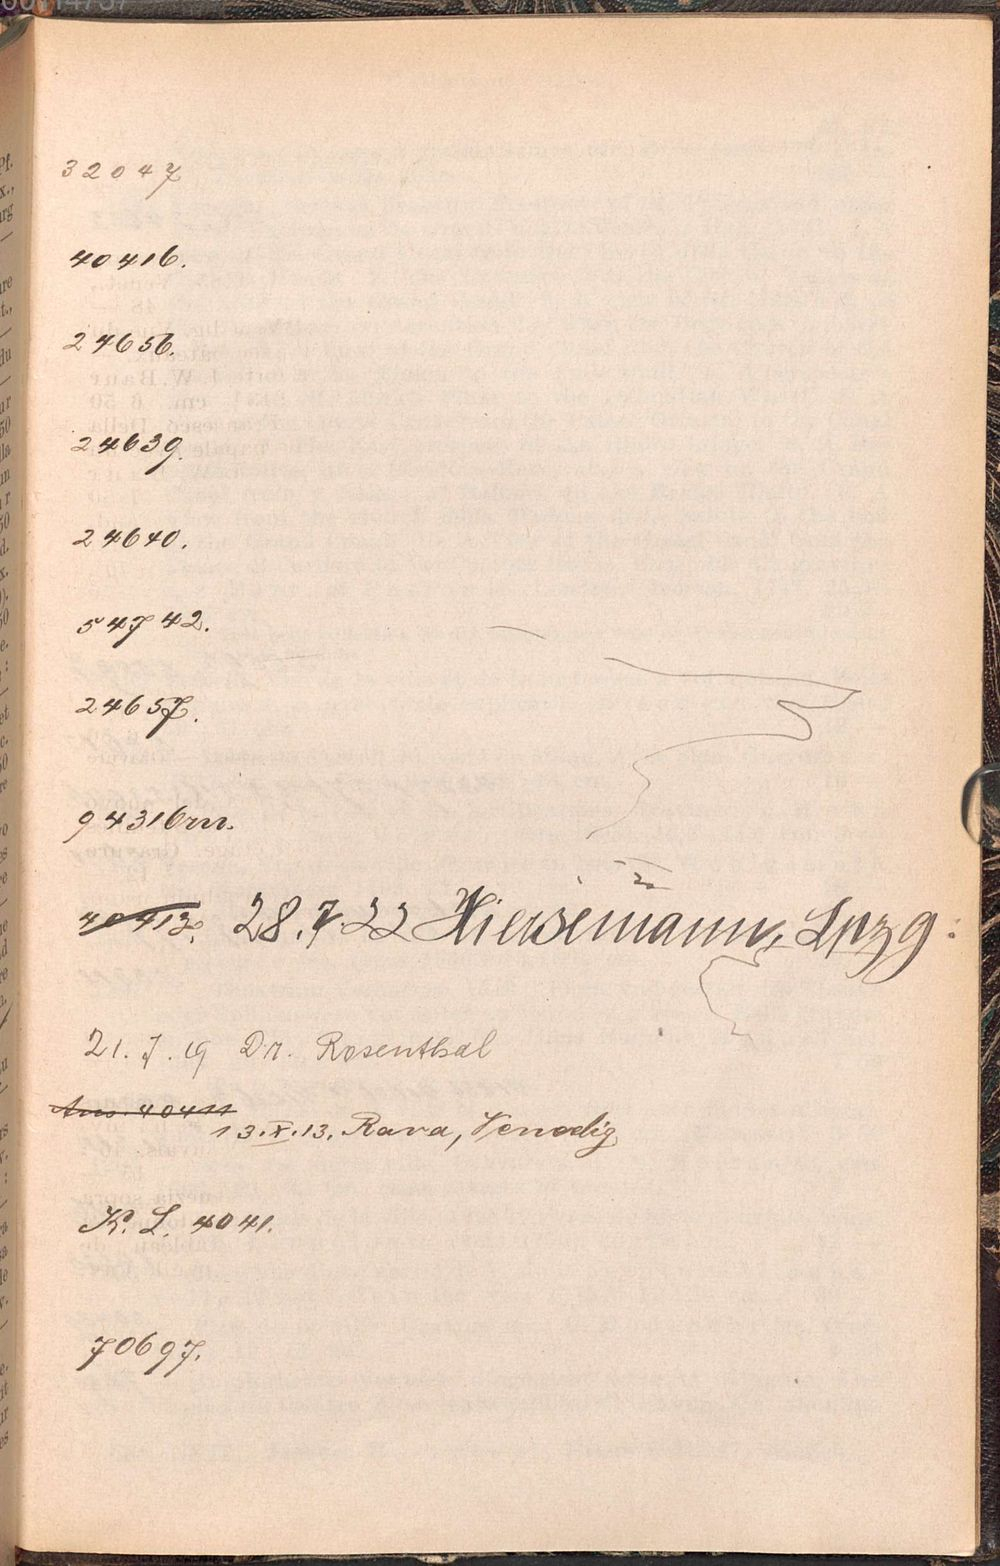 32047
40416.
24656.
24639.
24640.
54742.
24657.
94316m.
40413. 28.7.22 Hiersemann, Lpzg.
21.7.19 Dr. Rosenthal
40411
13.X.13. Rava, Venedig
K. L. 4041.
70697.